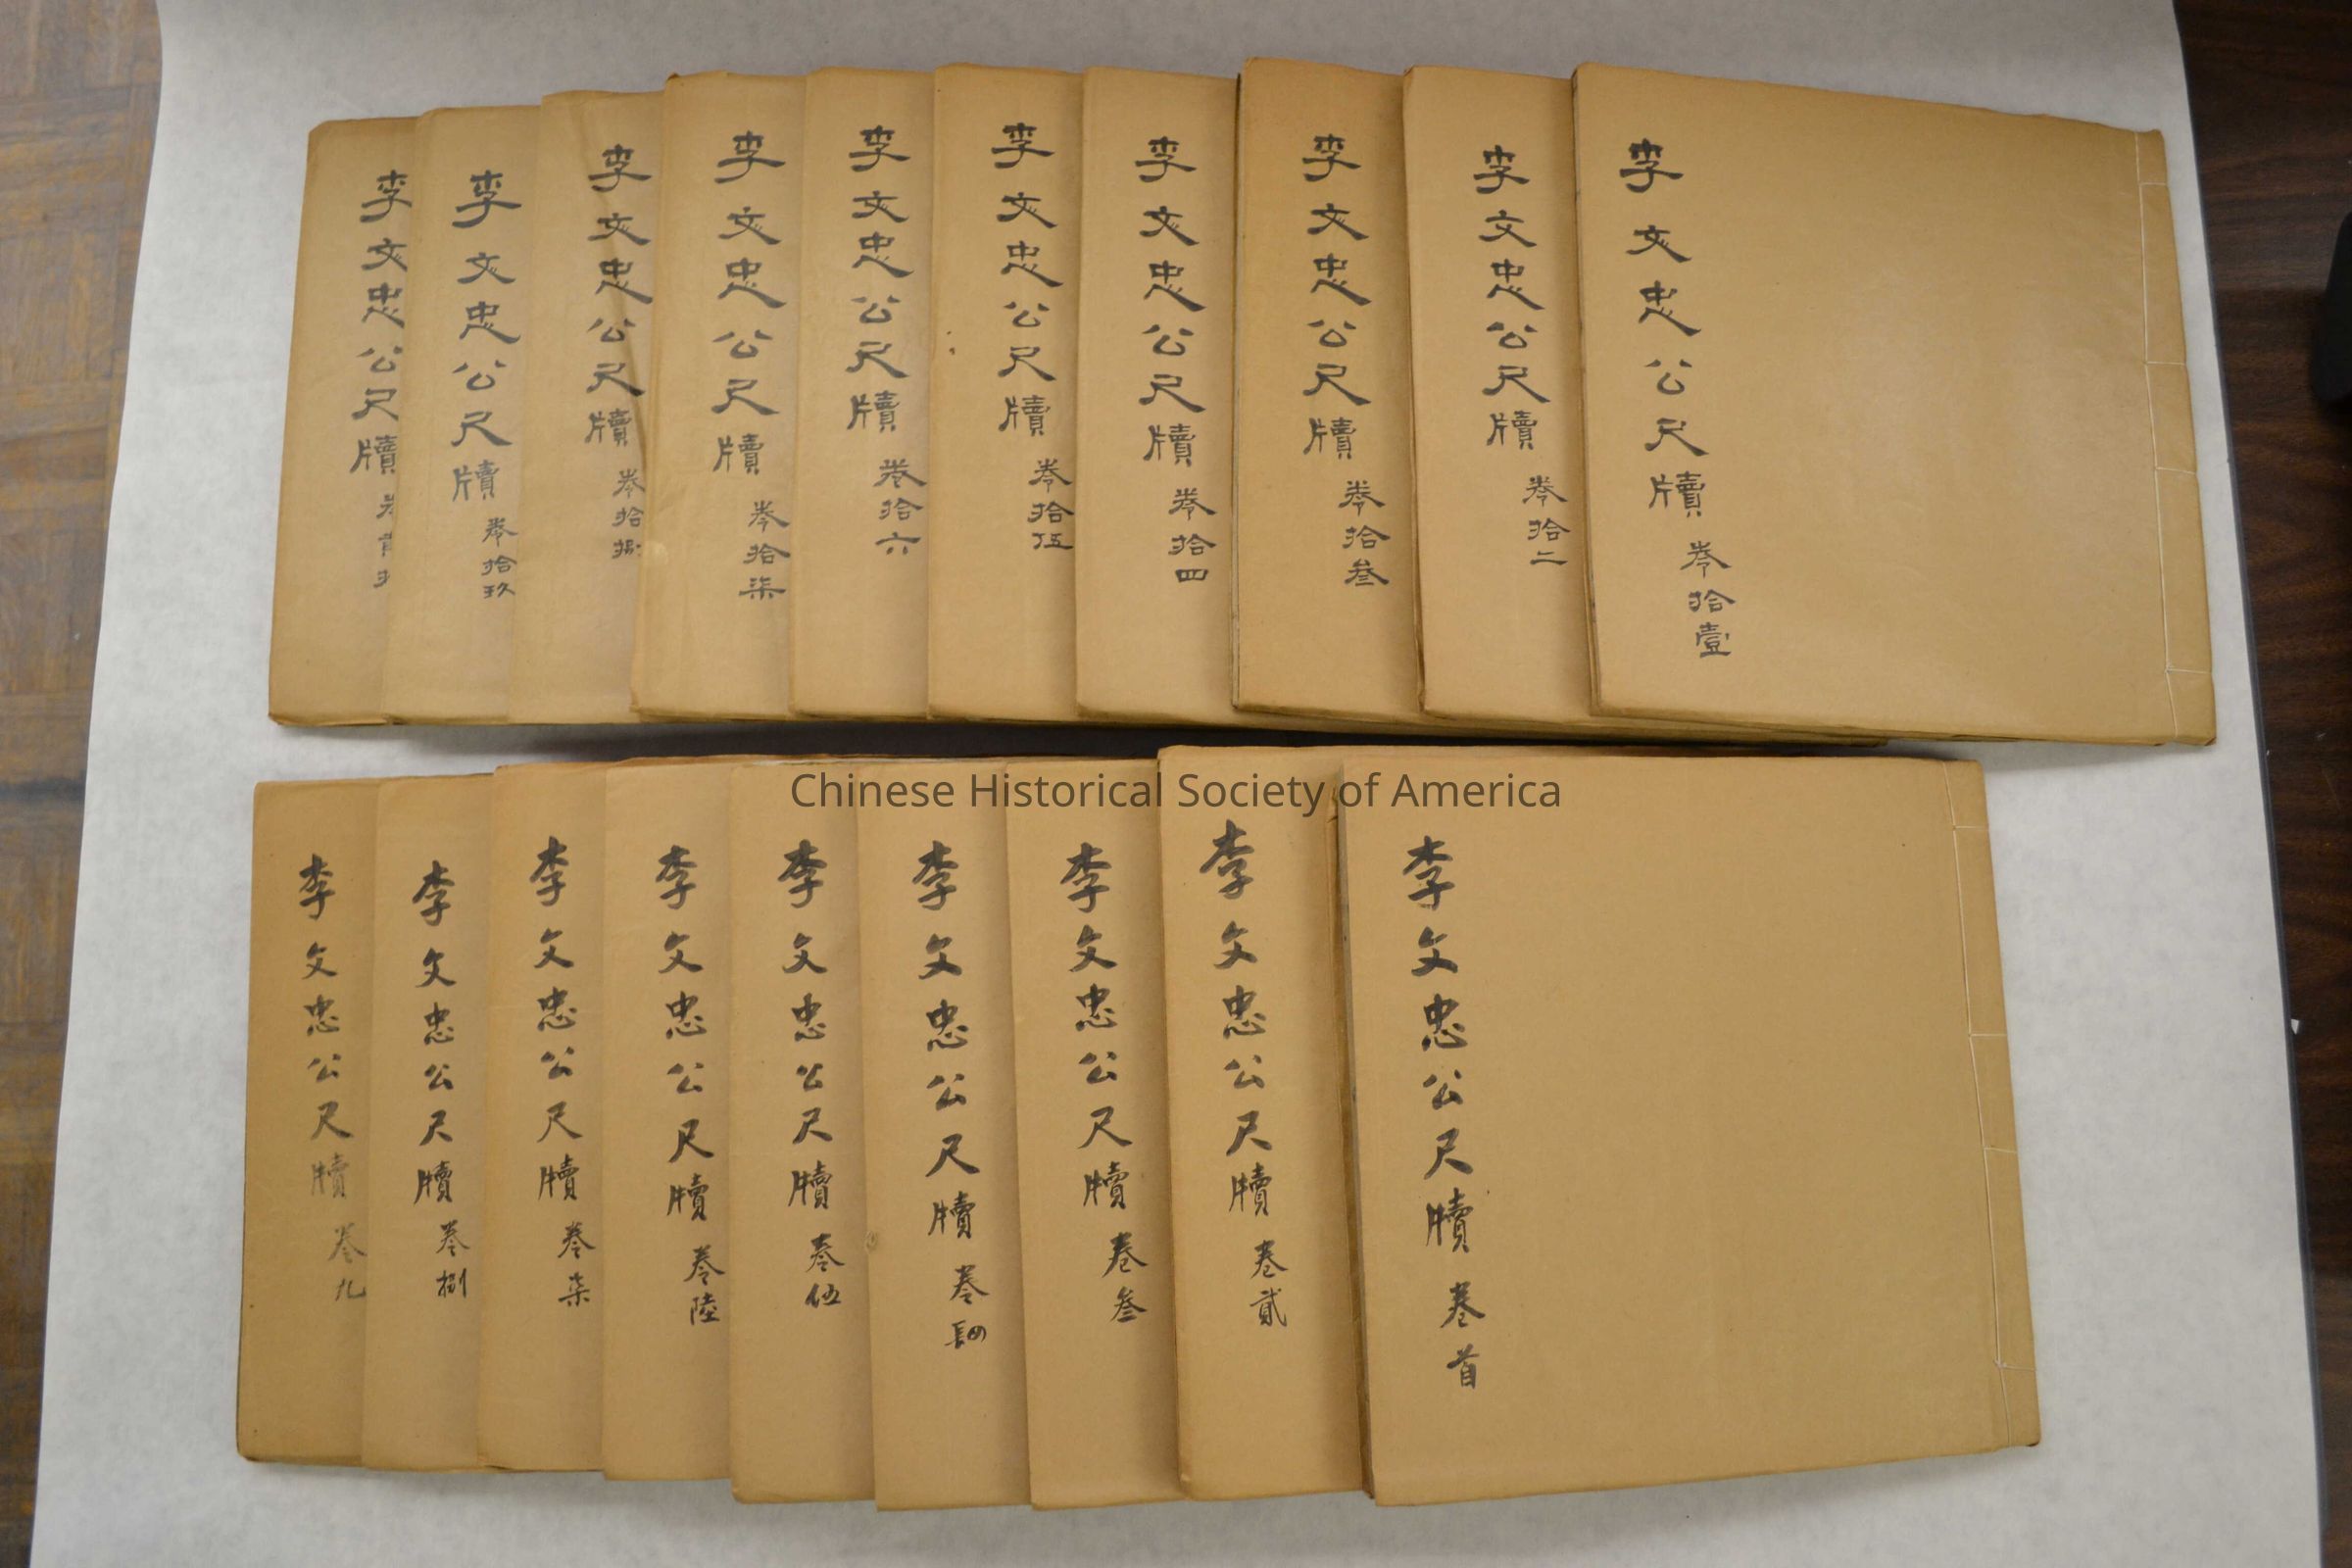 李文忠公尺牘 卷拾壹
李文忠公尺牘 卷拾二
李文忠公尺牘 卷拾叁
李文忠公尺牘 卷拾四
李文忠公尺牘 卷拾伍
李文忠公尺牘 卷拾六
李文忠公尺牘 卷拾柒
李文忠公尺牘 卷拾捌
李文忠公尺牘 卷拾玖
李文忠公尺牘
Chinese Historical Society of America
李文忠公尺牘 卷首
李文忠公尺牘 卷貳
李文忠公尺牘 卷叁
李文忠公尺牘 卷
李文忠公尺牘 卷伍
李文忠公尺牘 卷陸
李文忠公尺牘 卷柒
李文忠公尺牘 卷捌
李文忠公尺牘 卷九